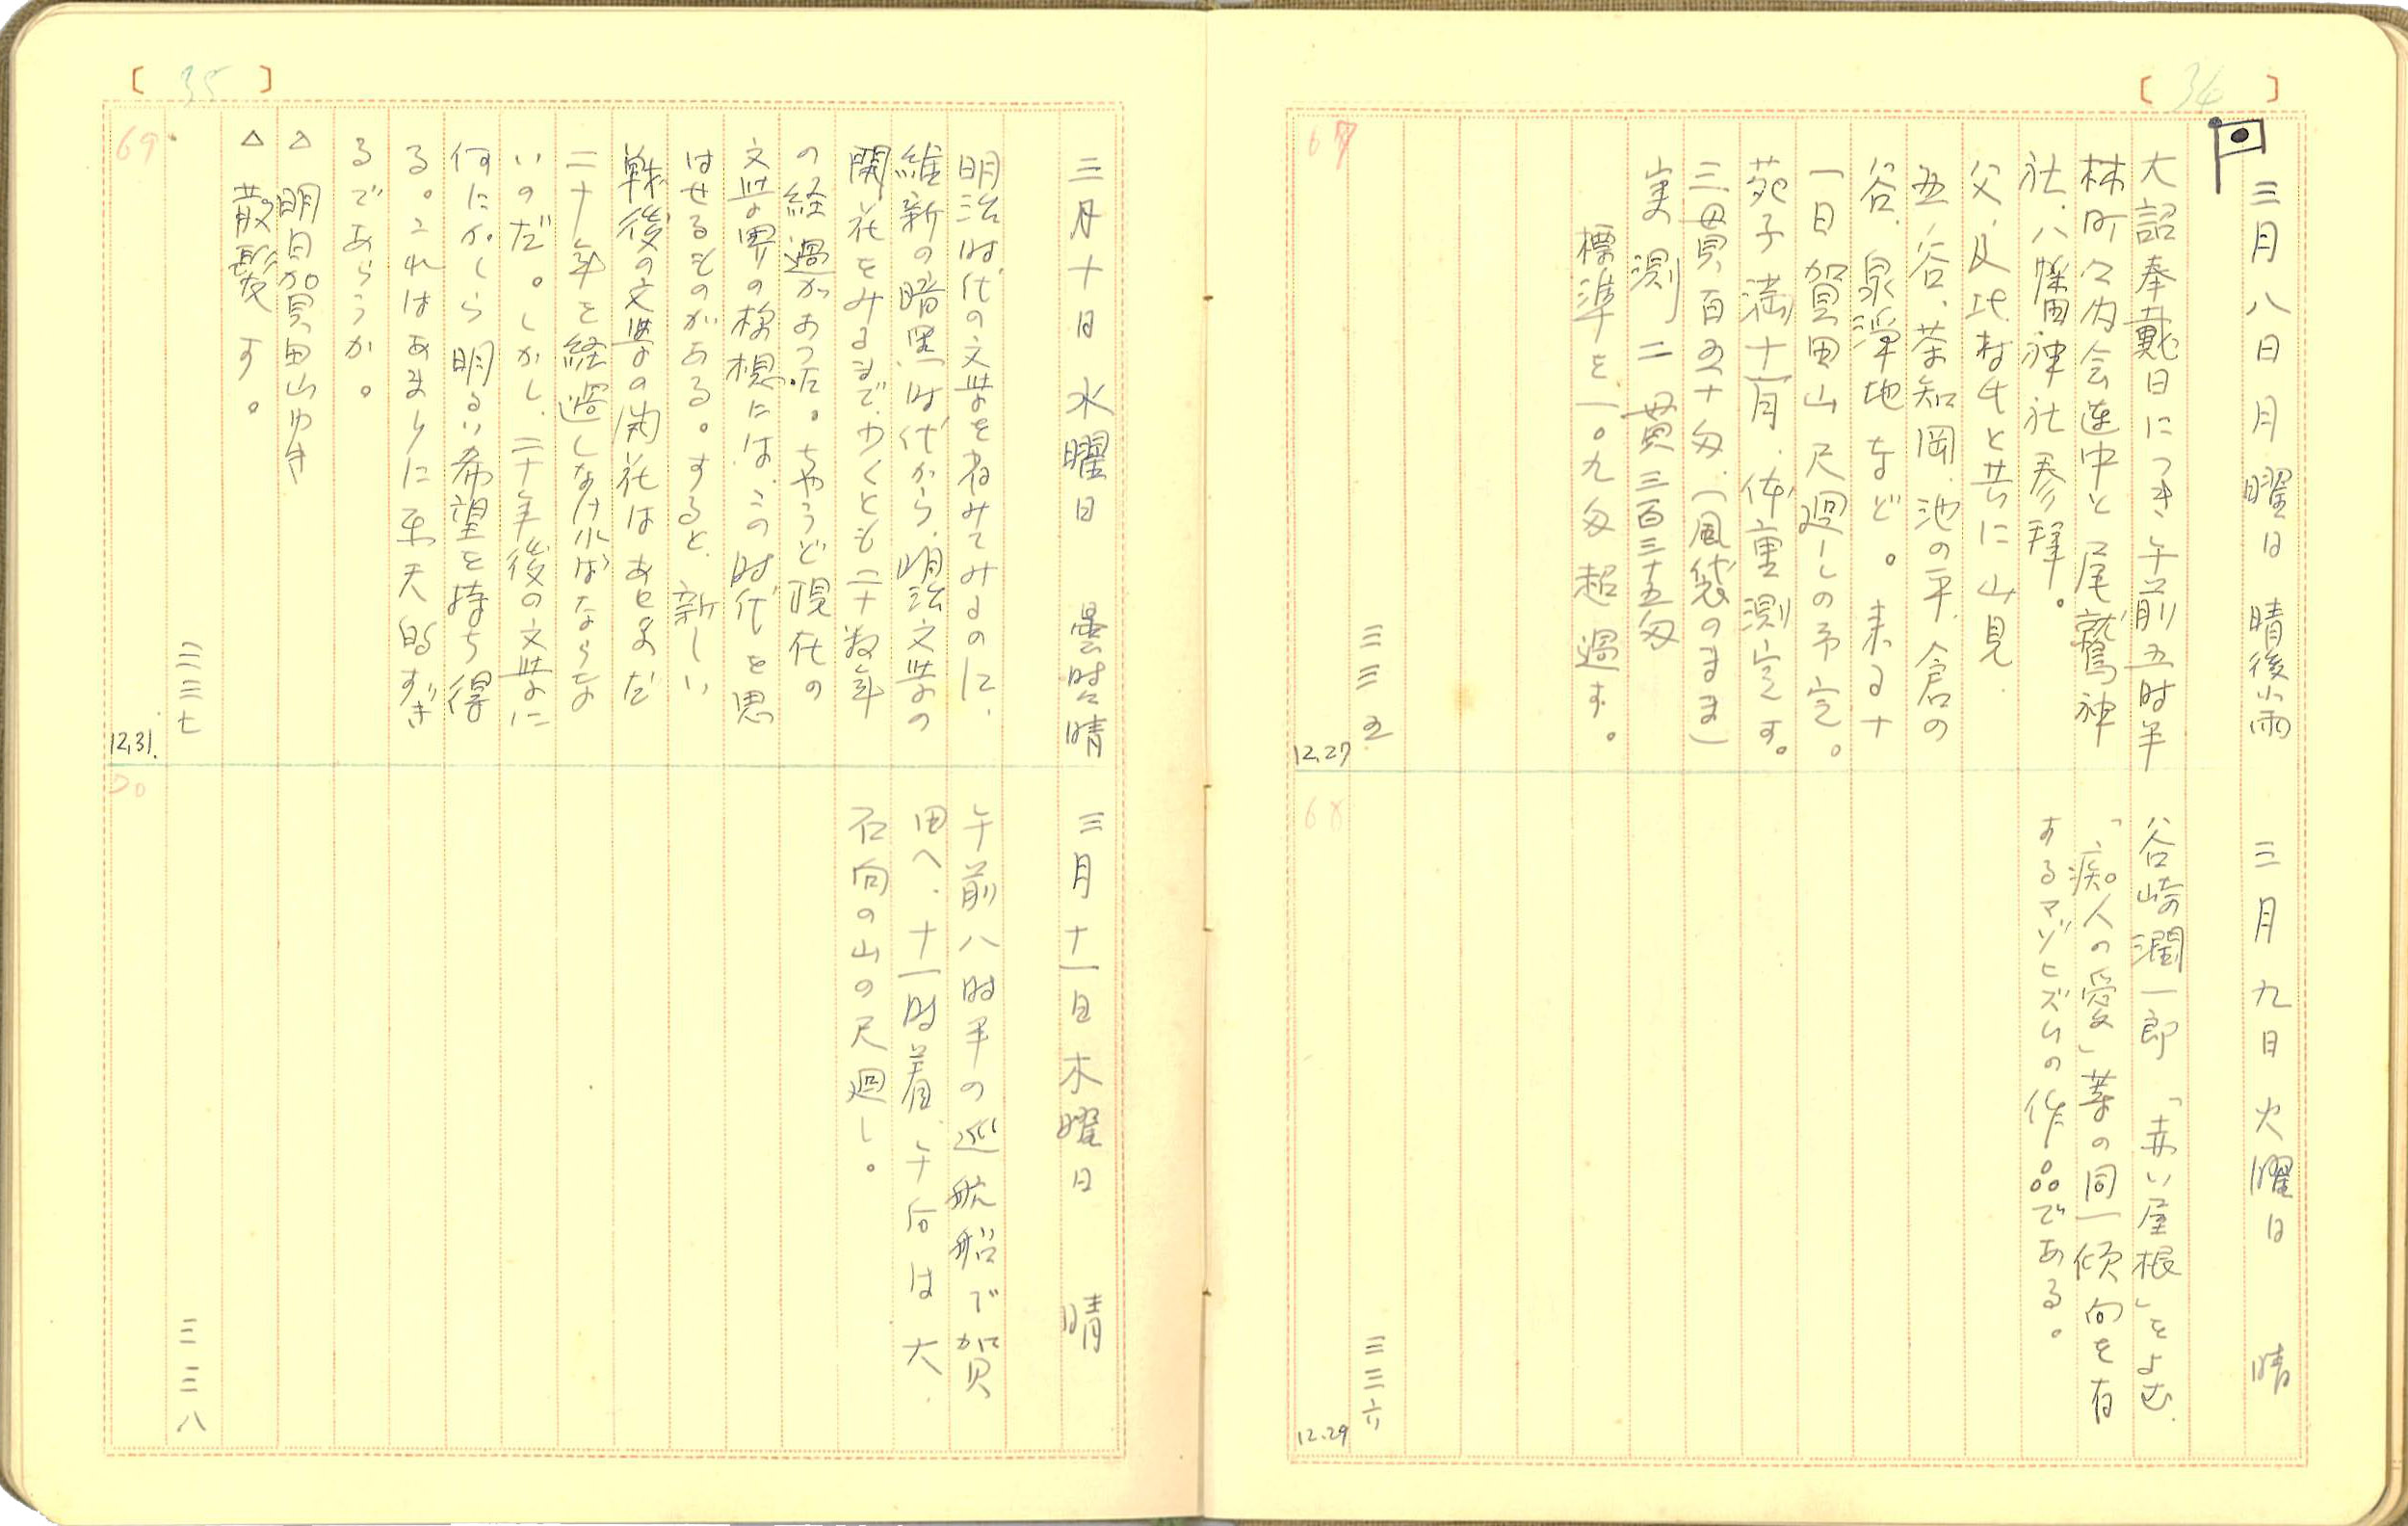 34
三月八日 月曜日 晴後小雨
大詔奉戴日につき午前五時半
林町々内会連中と尾鷲神
社、八幡神社参拝。
父、及比村氏と共に山見、
五ノ谷、茶知岡、池の平、倉の
谷、泉浄地など。来る十
一日賀田山尺廻しの予定。
苑子満十一月、体重測定す。
三貫百五十匁、(風袋のまま)
実測二貫三百三十五匁
標準を一〇九匁超過す。
三三五
67
12.27
三月九日 火曜日 晴
谷崎潤一郎「赤い屋根」をよむ、
「痴人の愛」等の同一傾向を有
するマゾヒズムの作品である。
三三六
68
12.29
35
三月十日 水曜日 曇時々晴
明治時代の文学を省みてみるのに、
維新の暗黒時代から、明治文学の
開花をみるまで、少くとも二十数年
の経過があつた。ちやうど現代の
文学界の様想には、この時代を思
はせるものがある。すると、新しい
戦後の文学の開花はあとまだ
二十年を経過しなければならな
いのだ。しかし、二十年後の文学に
何にかしら明るい希望を持ち得
る。これはあまりに楽天的すぎ
るであらうか。
△ 明日賀田山ゆき
△ 散髪す。
三三七
69
12.31.
三月十一日 木曜日 晴
午前八時半の巡航船で賀
田へ、十一時着、午后は大
石向の山の尺廻し。
三三八
70